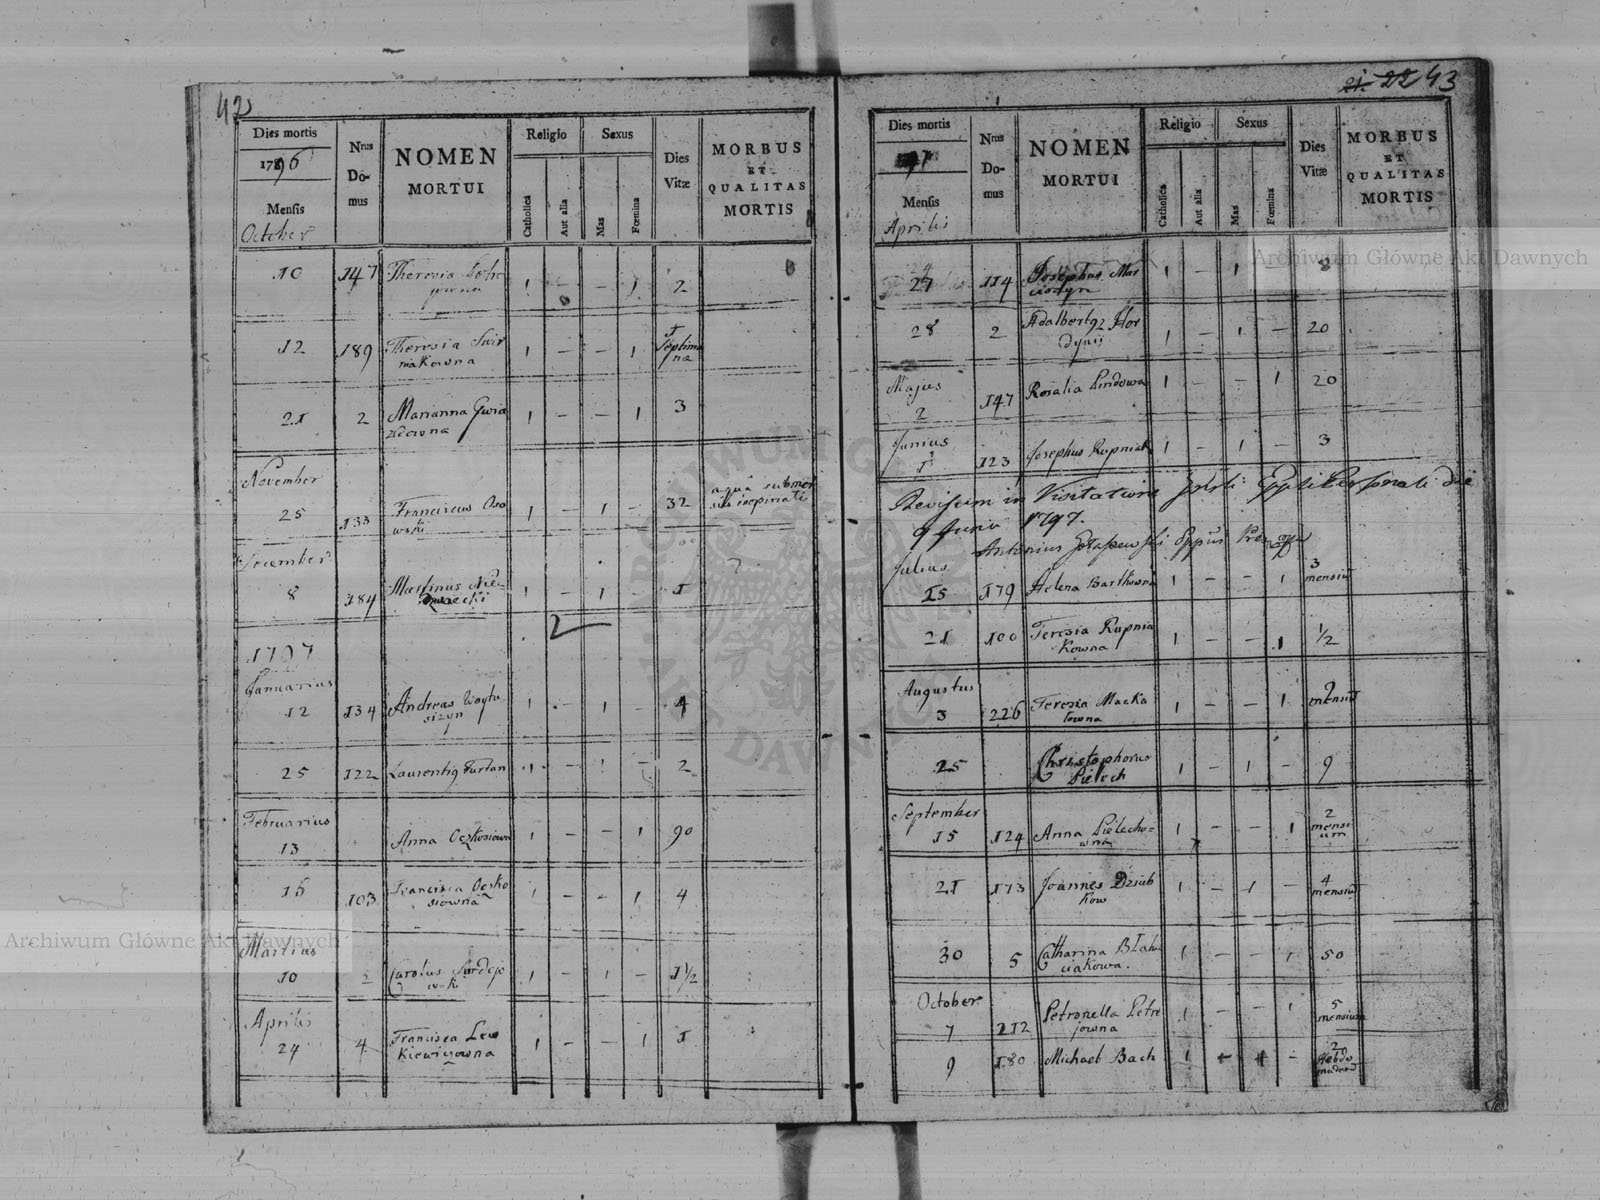 42
Dies mortis
1796
Mensis
October
Nrus
Do-
mus
NOMEN
MORTUI
Religio
Catholica
Aut alia
Sexus
Mas
Fœmina
Dies
Vitæ
MORBUS
ET
QUALITAS
MORTIS
10 147 Theresia Petre
jowna 1 - - 1 2
12 189 Theresia Swir
niakowna 1 - - 1 1
Septima
na
21 2 Marianna Gwia
zdowna 1 - - 1 3
November
25 133 Franciscus Oso
wski 1 - 1 - 32 aquâ submer
December
8 184 Martinus 1 - 1 - 1
1797
Januarius
12 134 Andreas Woytu
sizyn 1 - 1 - 4
25 122 Laurenti9 Furtan 1 - 1 - 2
Februarius
13 Anna 1 - - 1 90
15 103 Francisca Oczko
siowna 1 - - 1 4
Martius
10 2 Carolus
wski 1 - 1 - 1 1/2
Aprilis
24 4 Francisca Lew
kiewiczowna 1 - - 1 1
21. 22 43
Dies mortis
97
Mensis
Aprilis
Nrus
Do-
mus
NOMEN
MORTUI
Religio
Catholica
Aut alia
Sexus
Mas
Fœmina
Dies
Vitæ
MORBUS
ET
QUALITAS
MORTIS
27 114 Josephus Mar
ciszyn 1 - 1 - 8
28 2 Adalbert9 Hor
dynii 1 - 1 - 20
Majus
2 147 Rosalia Lindowa 1 - - 1 20
Junius
1 123 Josephus Rupniak 1 - 1 - 3
Revisum in Visitatione die
9 Junii 1797.
Antonius Gołaszewski Eppus
Julius
15 179 Helena Bartkowna 1 - - 1 3
mensiu
21 100 Teresia Rupnia
kowna 1 - - 1 1/2
Augustus
3 226 Teresia Macka
towna 1 - - 1 9
mensiu
25 Christophorus
Pielech 1 - 1 - 9
September
15 124 Anna Pielecho-
wna 1 - - 1 2
mensi
um
21 173 Joannes Dziub
kow 1 - 1 - 4
mensiu
30 5 Catharina Błah
ciakowa. 1 - - 1 50
October
7 212 Petronella Petre
jowna 1 - - 1 5
mensium
9 180 Michael Bach 1 - 1 - 2
Hebdo
madaru
Archiwum Główne Akt Dawnych
Archiwum Główne Akt Dawnych
ARCHIWUM GŁÓWNE AKT DAWNYCH